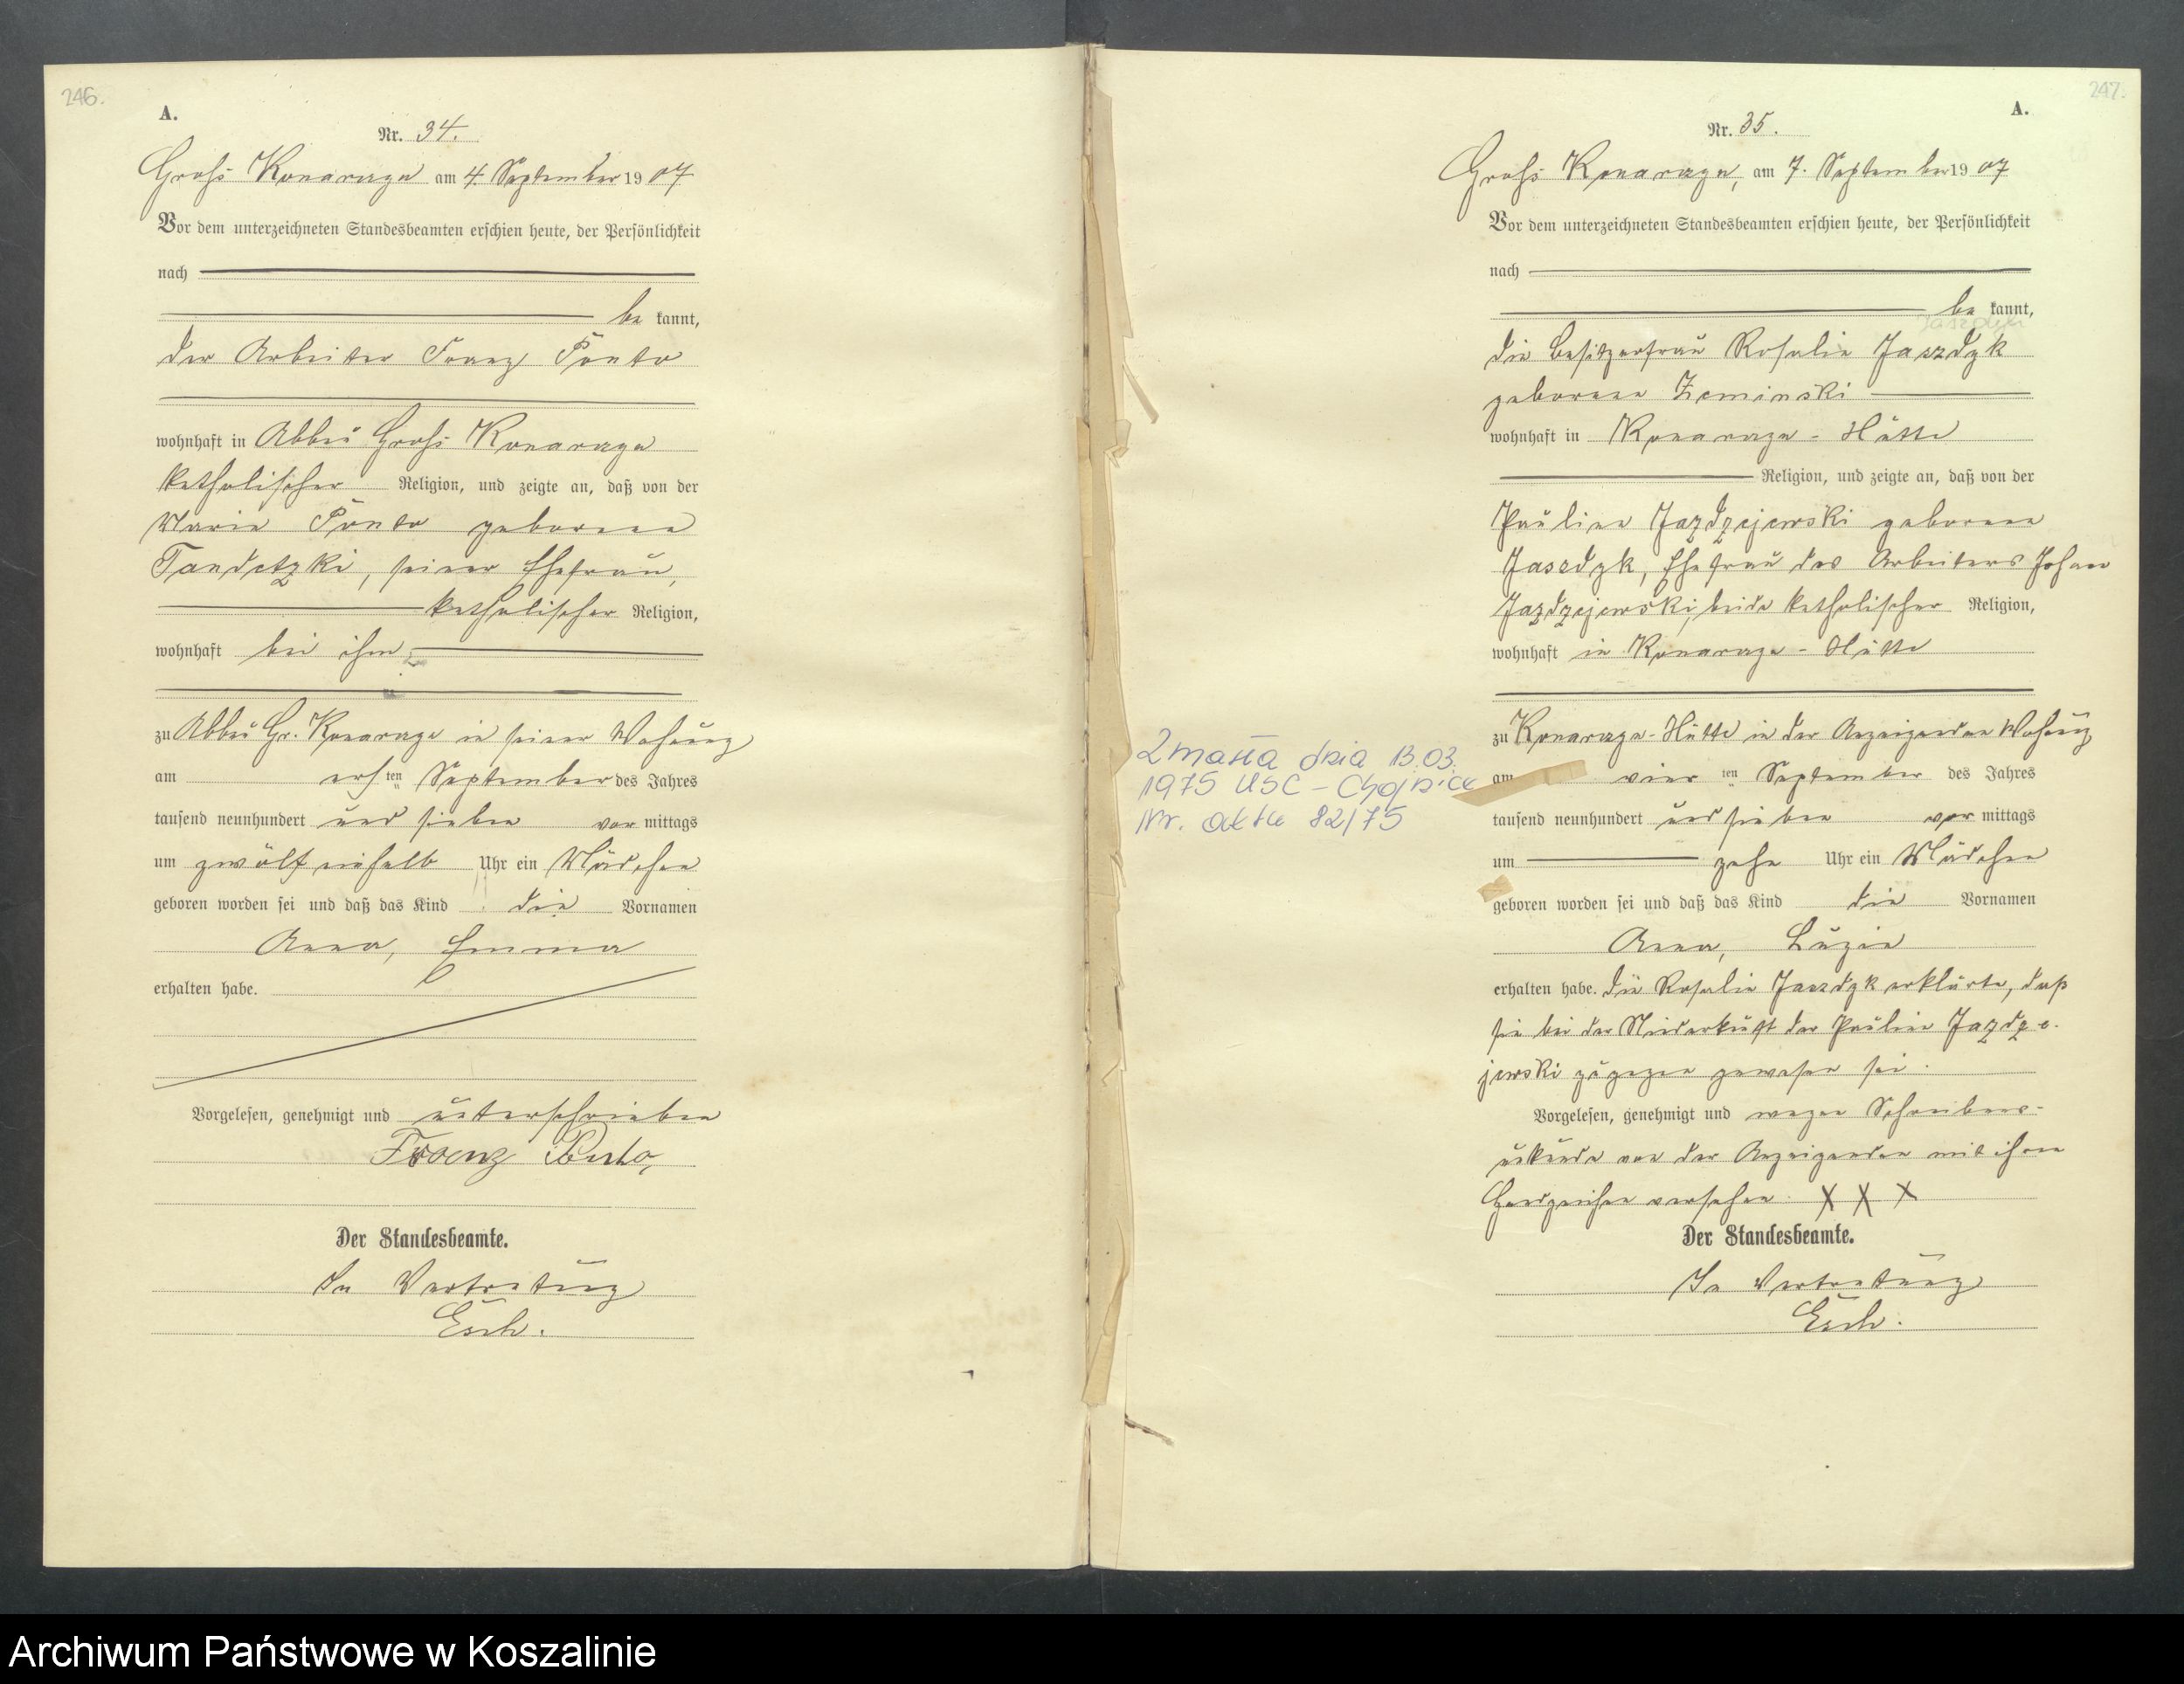 246.
A.
Nr. 34.
Groß Konarczyn am 4. September 1907
Vor dem unterzeichneten Standesbeamten erschien heute, der Persönlichkeit
nach
be kannt,
der Arbeiter Franz
wohnhaft in Abbau Groß Konarczyn
katholischer Religion, und zeigte an, daß von der
Maria geborene
Tandetzki, seiner Ehefrau,
katholischer Religion,
wohnhaft bei ihm
zu Abbau Gr. Konarczyn in seiner Wohnung
am ersten September des Jahres
tausend neunhundert und sieben vor mittags
um zwölf einhalb Uhr ein Mädchen
geboren worden sei und daß das Kind die Vornamen
Anna, Emma
erhalten habe.
Vorgelesen, genehmigt und unterschrieben
Franz
Der Standesbeamte.
In Vertretung
Esch.
247.
A.
Nr. 35.
Groß Konarczyn, am 7. September 1907
Vor dem unterzeichneten Standesbeamten erschien heute, der Persönlichkeit
nach
be kannt,
die Besitzerfrau Rosalie Jaszdzk
geborene Zeminski
wohnhaft in Konarczyn-Hütte
Religion, und zeigte an, daß von der
Pauline Jazdzejewski geborene
Jaszdzk, Ehefrau des Arbeiters Johann
Jazdzejewski, beide katholischer Religion,
wohnhaft in Konarczyn-Hütte
zu Konarczyn-Hütte in der Anzeigenden Wohnung
am vierten September des Jahres
tausend neunhundert und sieben vor mittags
um zehn Uhr ein Mädchen
geboren worden sei und daß das Kind die Vornamen
Anna, Luzie
erhalten habe. Die Rosalie Jaszdzk erklärte, daß
sie bei der Niederkunft der Pauline Jazdze-
jewski zugegen gewesen sei.
Vorgelesen, genehmigt und wegen Schreibens-
unkunde von der Anzeigenden mit ihrem
Handzeichen versehen. X X X
Der Standesbeamte.
In Vertretung
Esch.
Zmarła dnia 13.03.
1975 USC - Chojnice
Nr. aktu 82/75
Archiwum Państwowe w Koszalinie